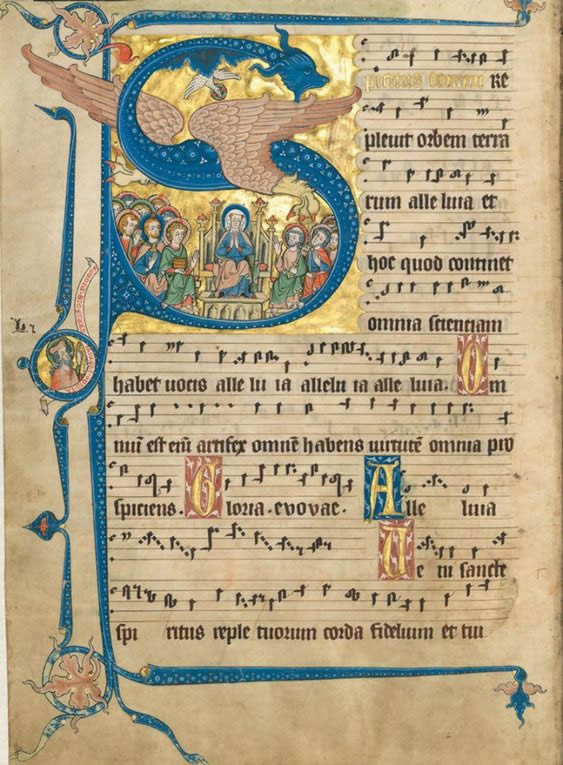 Spiritus domini re
pleuit orbem terra
rum alle luia et
hoc quod continet
omnia scienciam
habet uocis alle lu ia allelu ia alle luia. Om
niū est eī artifex omnē habens uirtutē omnia pro
spiciens. Gloria. evovae. Alle luia
Ve ni sancte
spi ritus reple tuorum corda fidelium et tui